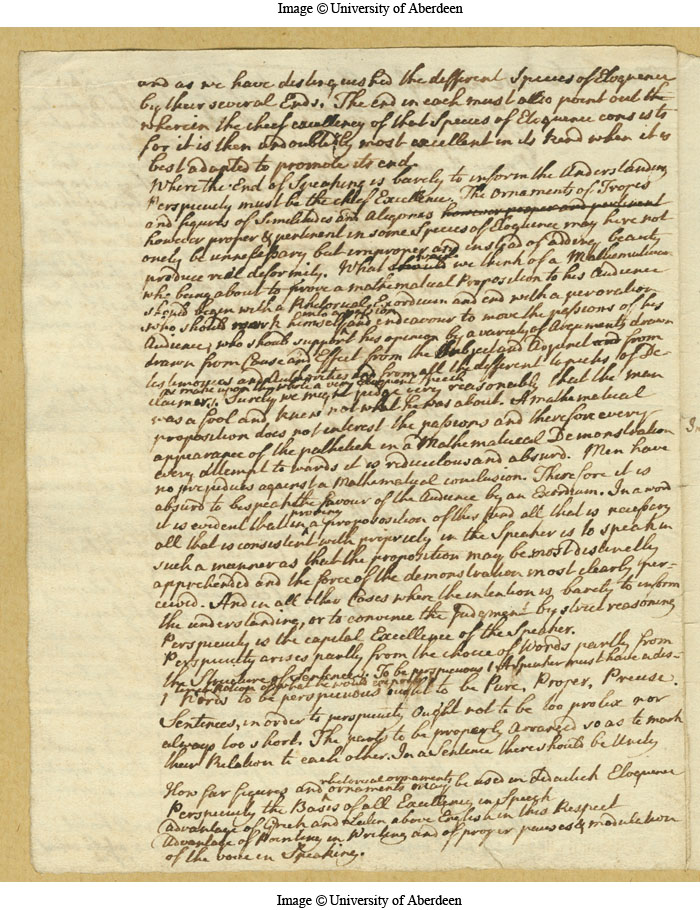 Image © University of Aberdeen
and as we have distinguished the different Species of Eloquence
by their several Ends. The end in each must also point out the
wherein the chief excellency of that Species of Eloquence consists
for it is then undoubtedly most excellent in its kind when it is
best adapted to promote its end.
Where the End of Speaking is barely to inform the Understanding
Perspicuity must be the chief Excellence. The Ornaments of Tropes
and figures of Similitudes and Alegorys however proper and pertinent
however proper & pertinent in some Species of Eloquence may here not
onely be unnecessary but improper and instead of adding beauty
produce real deformity. What should we think of a Mathematician
who being about to prove a mathematical Proposition to his Audience
should begin with a Rhetorical Exordium and end with a peroration
who should work himself into a passion and endeavour to move the passions of his
Audience, who should support his opinion by a variety of Arguments drawn
drawn from Cause and Effect from the Subject and Adjunct and from
Testimonys and Authorities and from all the different topicks of De
claimers. Surely we might judge very reasonably that the man
was a fool and knew not what he was about. A mathematical
proposition does not interest the passions and therefore every
appearance of the pathetick in a Mathematical Demonstration
every attempt towards it is ridiculous and absurd. Men have
no prejudices against a Mathematical conclusion. Therefore it is
absurd to bespeak the favour of the Audience by an Exordium. In a word
it is evident that in proving a proposition of this kind all that is necessary
all that is consistent with propriety in the Speaker is to speak in
such a manner as that the proposition may be most distinctly
apprehended and the force of the demonstration most clearly per-
ceived. And in all other Cases where the intention is barely to inform
the understanding, or to convince the Judgement by strict reasoning
Perspicuity is the capital Excellence of the Speaker.
Perspicuity arises partly from the choice of Words partly from
the Structure of Sentences. To be perspicuous 1 A Speaker must have a dis-
tinct Notion of what he would express
1 Words to be perspicuous ought to be Pure, Proper, Precise.
Sentences, in order to perspicuity ought not to be too prolix nor
always too short. The parts to be properly arranged so as to mark
their Relation to each other. In a Sentence there should be Unity
How far figures and rhetorical ornaments may be used in Didactick Eloquence
Perspicuity the Basis of all Excellency in Speech
Advantage of Greek and Latin above English in this Respect
Advantage of Pointing in Writing and of proper pauses & modulation
of the voice in Speaking.
Image © University of Aberdeen